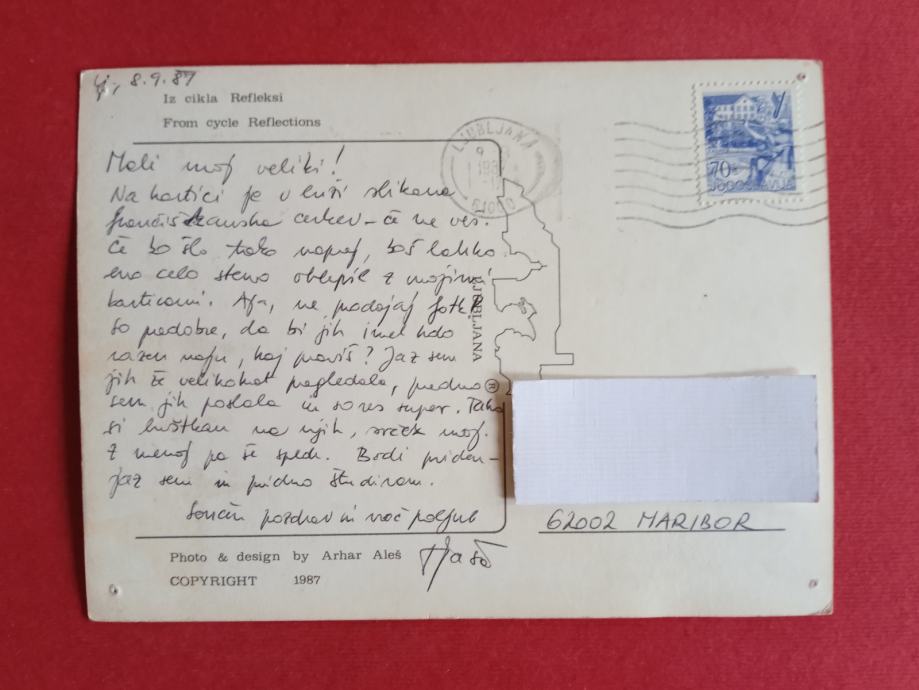 Lj, 8.9.87
Iz cikla Refleksi
From cycle Reflections
Mali moj veliki!
Na kartici je v luži slikana
frančiškanska cerkev – če ne veš.
Če bo šlo tako naprej, boš lahko
eno celo steno oblepil z mojimi
karticami. Aja, ne podajaj fotk
so predobre, da bi jih imel kdo
razen naju, kaj praviš? Jaz sem
jih že velikokrat pogledala, predno
sem jih poslala in so res super. Tako
si luštkan na njih, srček moj.
Z menoj pa še spedi. Bodi priden –
jaz sem in pridno študiram.
Sončen pozdrav in noč poljub
Photo & design by Arhar Aleš
COPYRIGHT 1987
LJUBLJANA
61000
LJUBLJANA
®
70
JUGOSLAVIJA
62002 MARIBOR